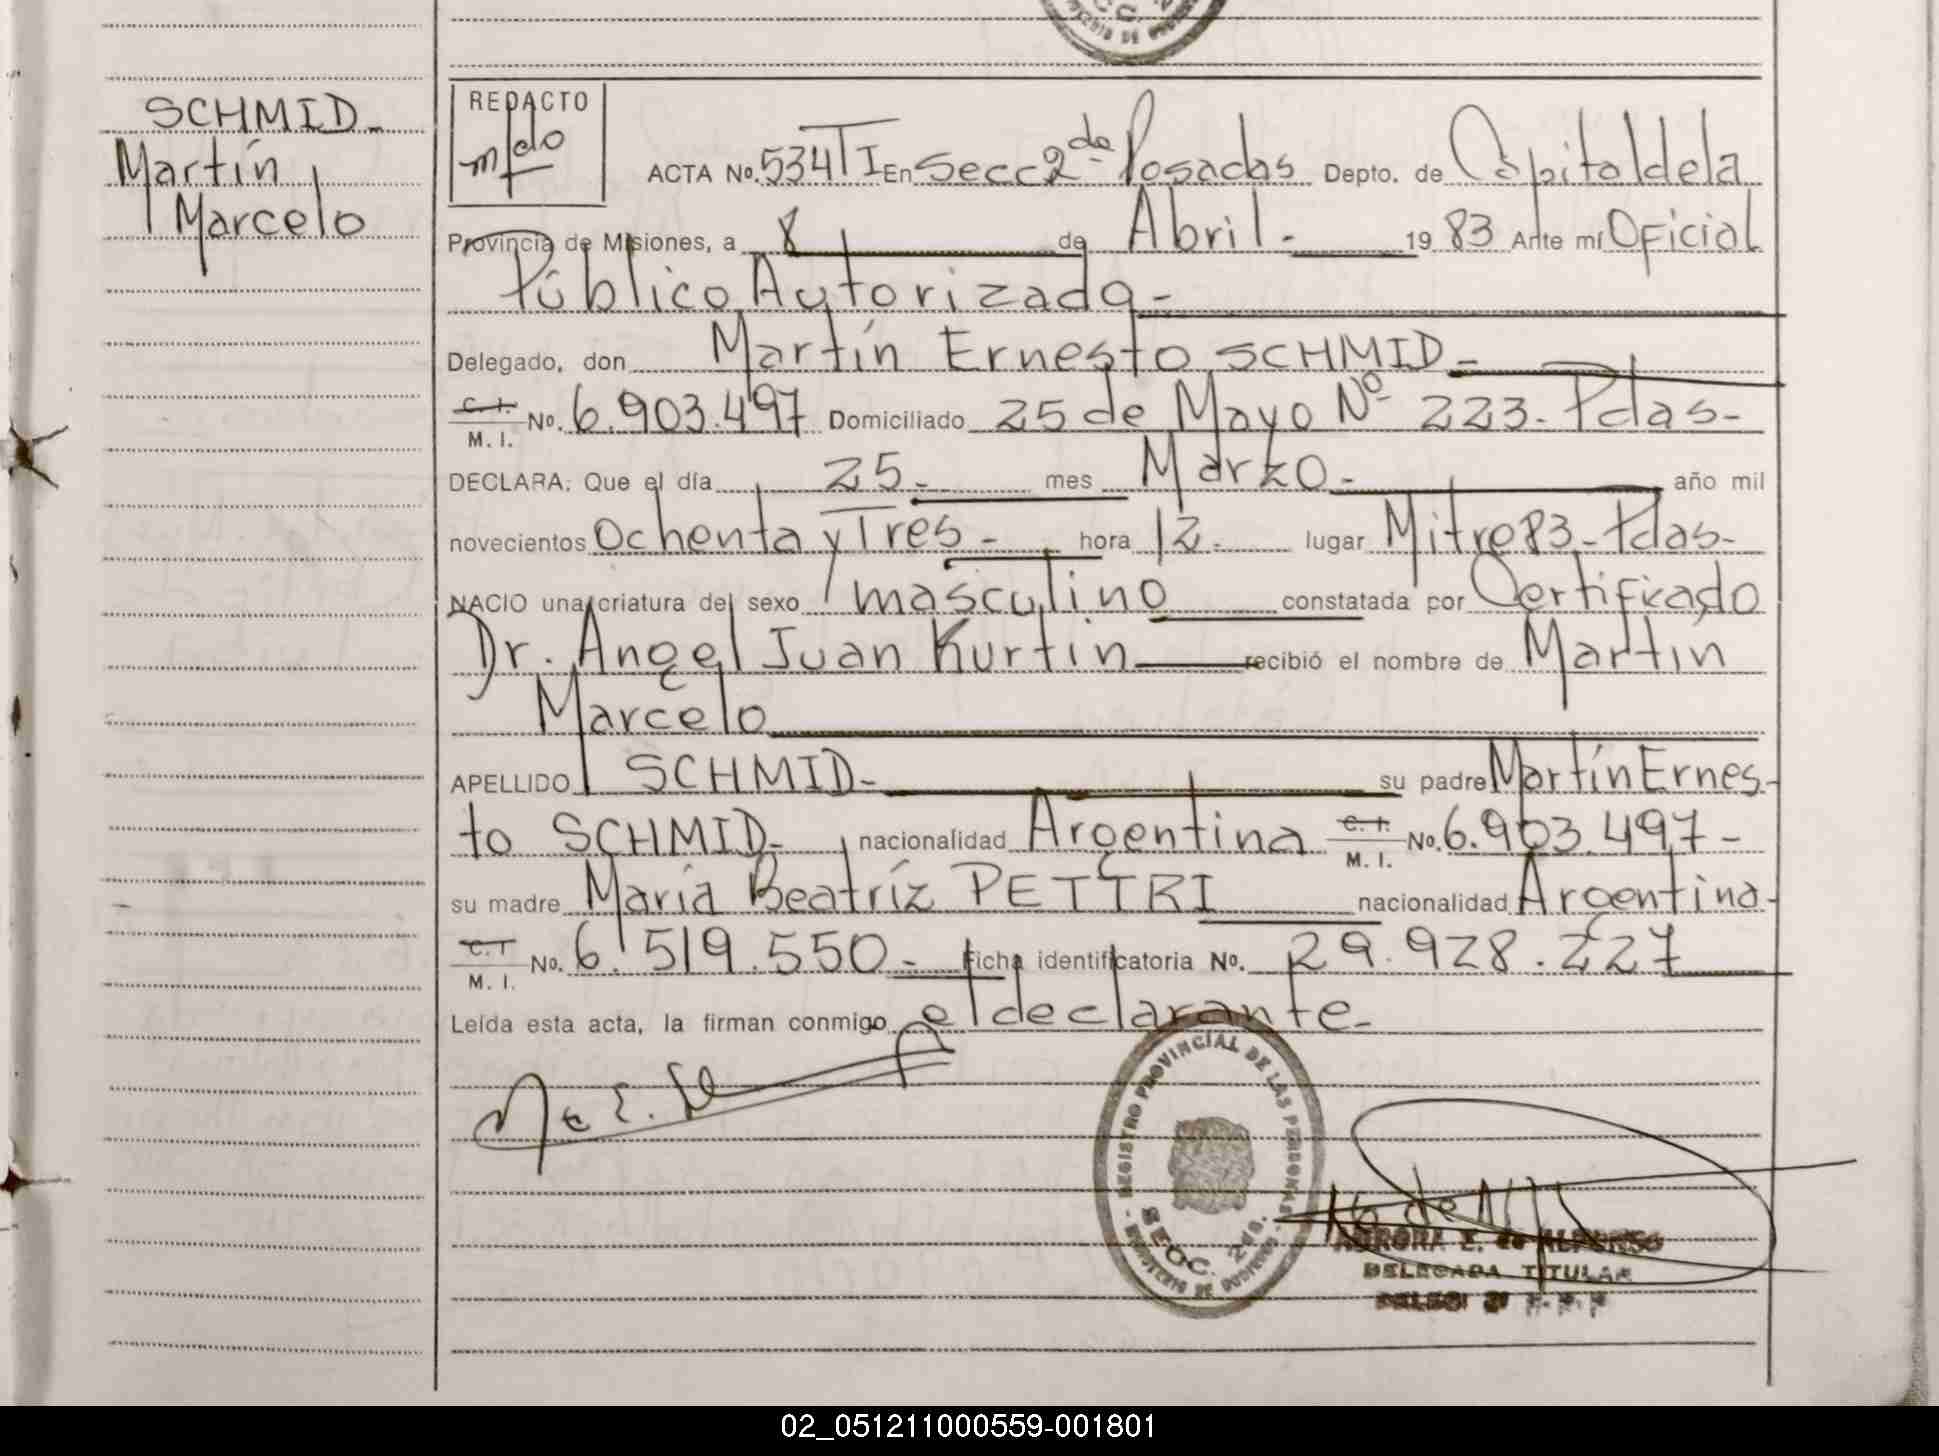 SCHMID-
Martín
Marcelo
REDACTO
ACTA No. 534 T I En Secc 2da Posadas Depto. de Capital de la
Provincia de Misiones, a 8 de Abril - 1983 Ante mí Oficial
Público Autorizada -
Delegado, don Martín Ernesto SCHMID -
C. I.
M. I. No. 6.903.497 Domiciliado 25 de Mayo Nº 223 - Pdas -
DECLARA: Que el día 25 - mes Marzo - año mil
novecientos Ochenta y Tres - hora 12 - lugar Mitre 83 - Pdas -
NACIO una criatura del sexo masculino constatada por Certificado
Dr. Angel Juan Kurtin recibió el nombre de Martin
Marcelo
APELLIDO SCHMID - su padre Martín Ernes-
to SCHMID - nacionalidad Argentina C. I. M. I. No. 6.903.497 -
su madre María Beatríz PETTRI nacionalidad Argentina -
C. I
M. I. No. 6.519.550 - Ficha identificatoria No. 29.928.227
Leída esta acta, la firman conmigo el declarante -
REGISTRO PROVINCIAL DE LAS PERSONAS
SECC. 2da.
AURORA E. de ALFONSO
DELEGADA TITULAR
02_051211000559-001801